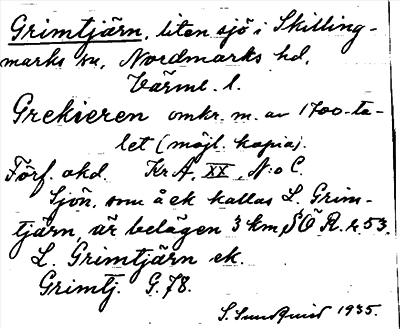 Grimtjärn, liten sjö i Skilling-
marks sn, Nordmarks hd,
Värml. l.
Grekieren omkr. m. av 1700-ta-
let (möjl. kopia).
Förf. okd. Kr.A, XX, N:o C.
Sjön, som å ek kallas L. Grim-
tjärn, är belägen 3 km SÖ R. r. 53.
L. Grimtjärn ek.
Grimtj. G. 78.
S. Sundquist 1935.